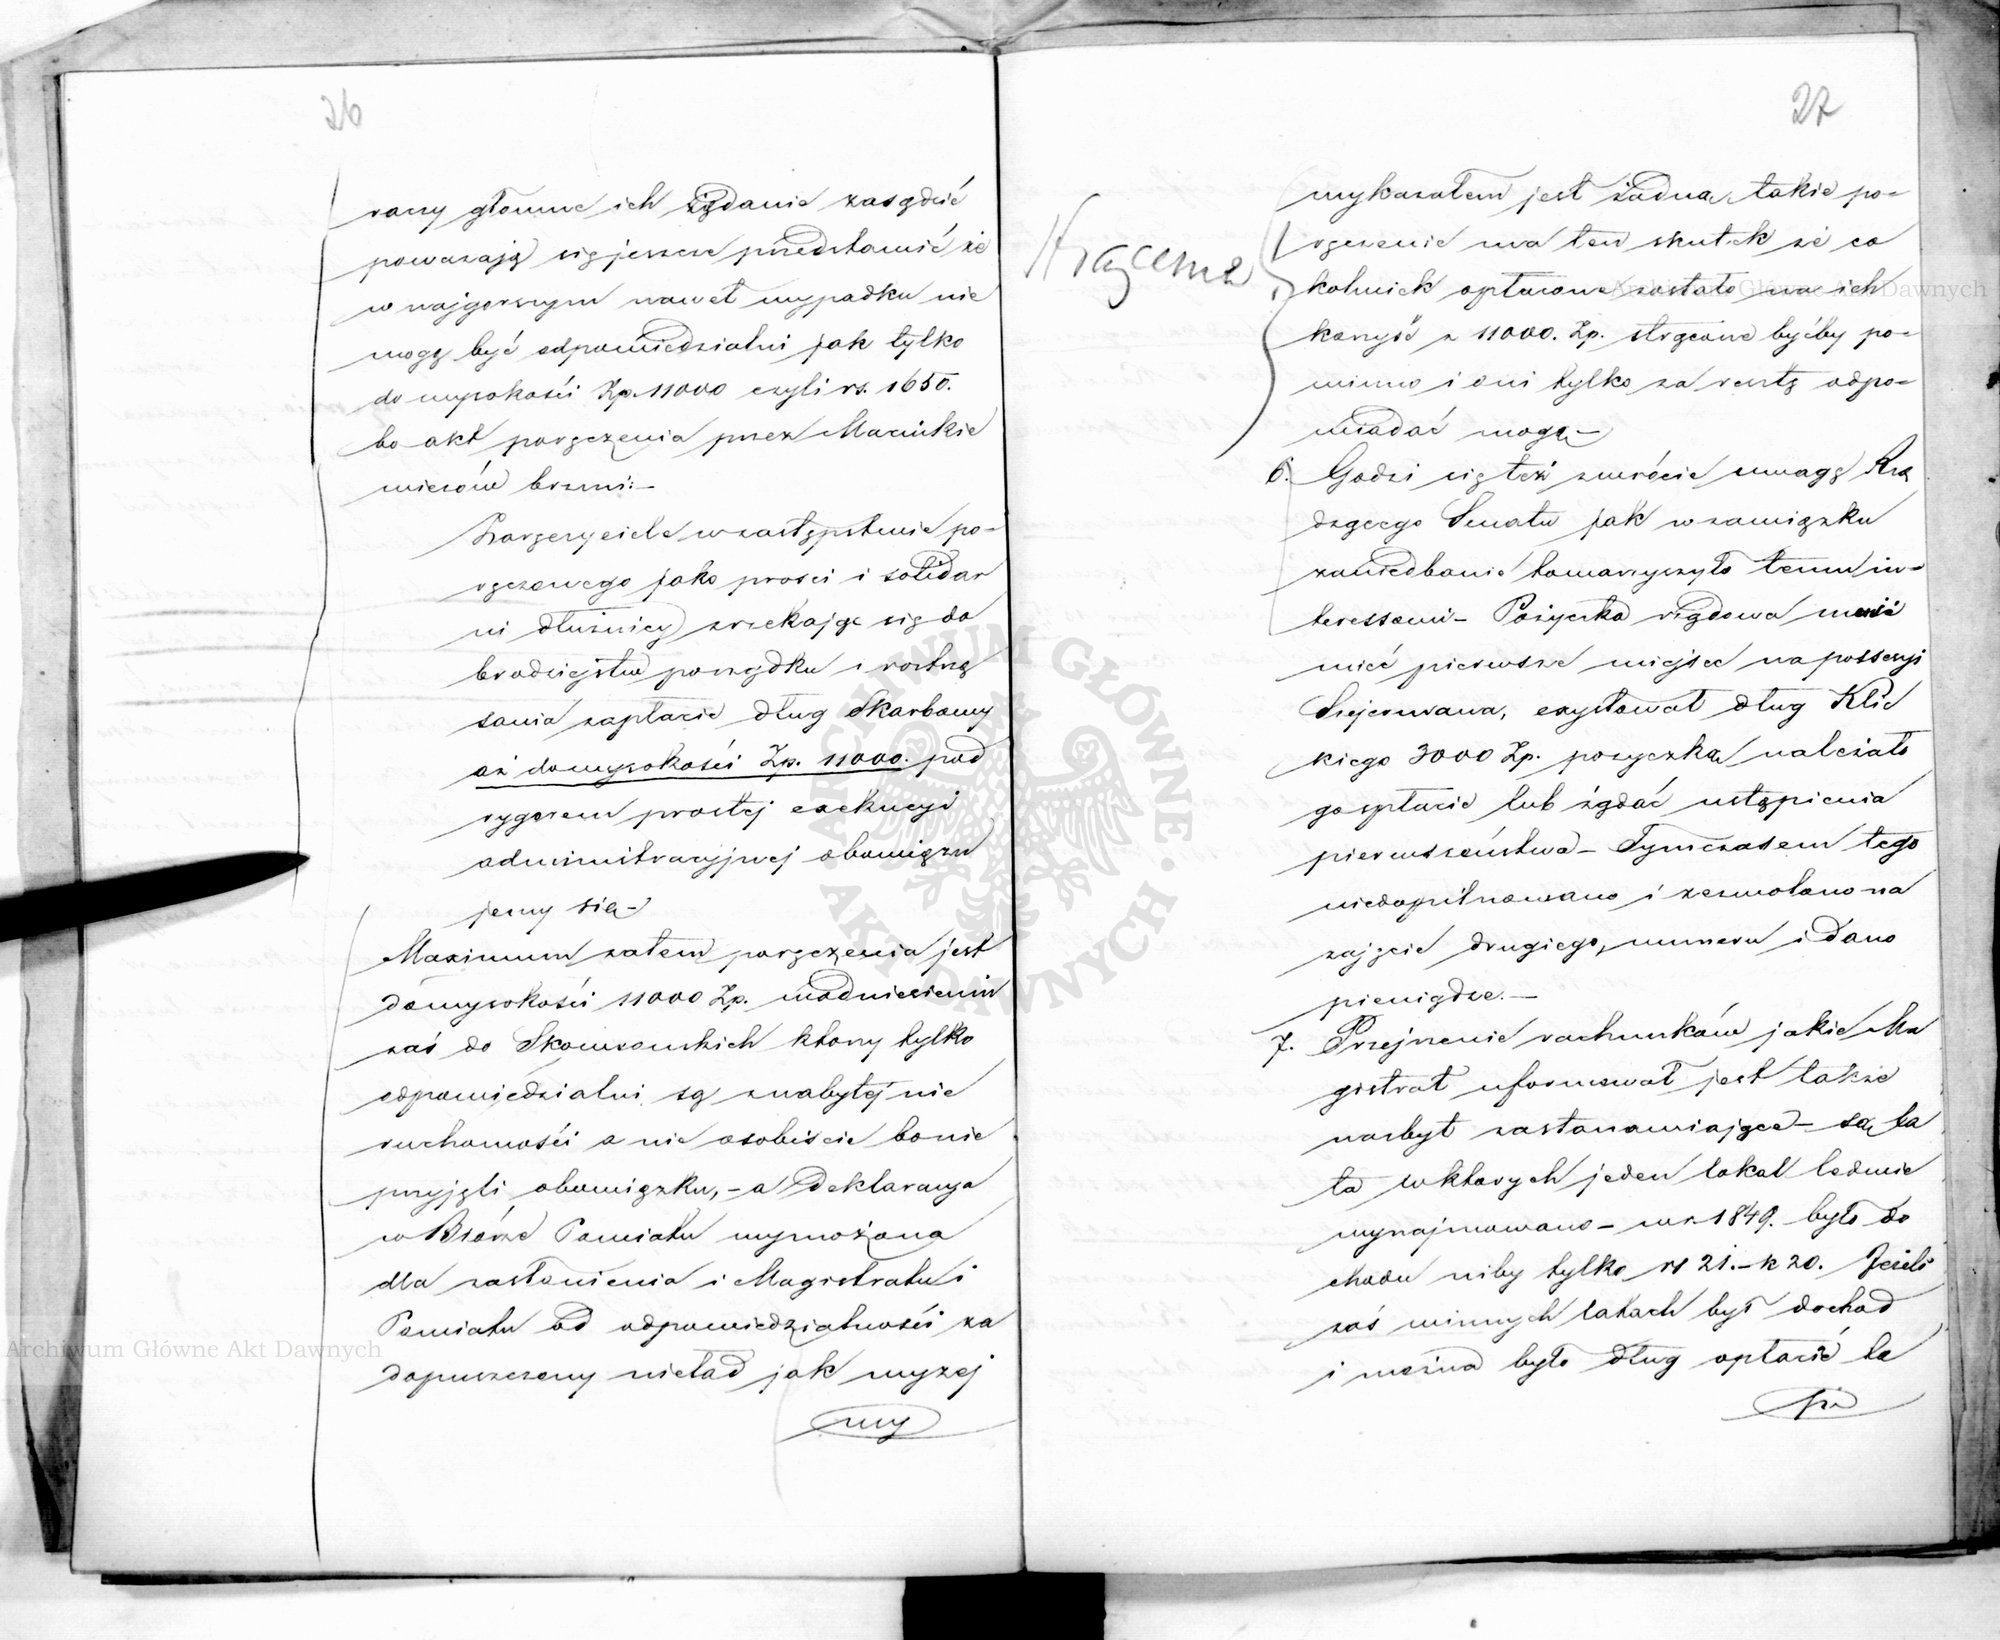 26
raczy główne ich żądanie zasądzić
poważają się jeszcze przedstawić że
w najgorszym nawet wypadku nie
mogą być odpowiedzialni jak tylko
do wysokości Zp. 11000 czyli rs. 1650.
bo akt poręczenia przez Marcinkie
wiczów brzmi:-
Poręczyciele w zastępstwie po-
ręczonego jako prości i solidar
ni dłużnicy zrzekając się do
brodziejstw porządku i roztrzą
sania zapłacić dług Skarbowy
aż do wysokości Zp. 11000. pod
rygorem prostej exekucyi
administracyjnej obowiązu
jemy się-
Maximum zatem poręczenia jest
do wysokości 11000 Zp. w odniesieniu
zaś do Skowrońskich którzy tylko
odpowiedzialni są z nabytej nie
ruchomości a nie osobiście bo nie
przyjęli obowiązku,- a Deklaracya
w Biórze Powiatu wymożona
dla zasłonienia i Magistratu i
Powiatu od odpowiedzialności za
dopuszczony nieład jak wyżej
wy
27
wykazałem jest żadną, takie po-
ręczenie ma ten skutek że co
kolwiek opłacone zostało na ich
korzyść z 11000. Zp. strącone byćby po-
winno i oni tylko za resztę odpo-
wiadać mogą-
6. Godzi się też zwrócić uwagę Rzą
dzącego Senatu jak w związku
zaniedbanie towarzyszyło temu in-
teressowi- Pożyczka rządowa
mieć pierwsze miejsce na possessyi
exystował dług Klic
kiego 3000 Zp. pożyczką należało
go spłacić lub żądać ustąpienia
pierwszeństwa- Tymczasem tego
niedopilnowano i zezwolono na
zajęcie drugiego numeru i dano
pieniądze.-
7. Przejrzenie rachunków jakie Ma
gistrat uformował jest także
nazbyt zastanawiające- są la
ta w których jeden lokal ledwie
wynajmowano- w r. 1849. było do
chodu niby tylko rs 21.- k 20. Jeżeli
zaś w innych latach był dochód
i można było dług opłacić to